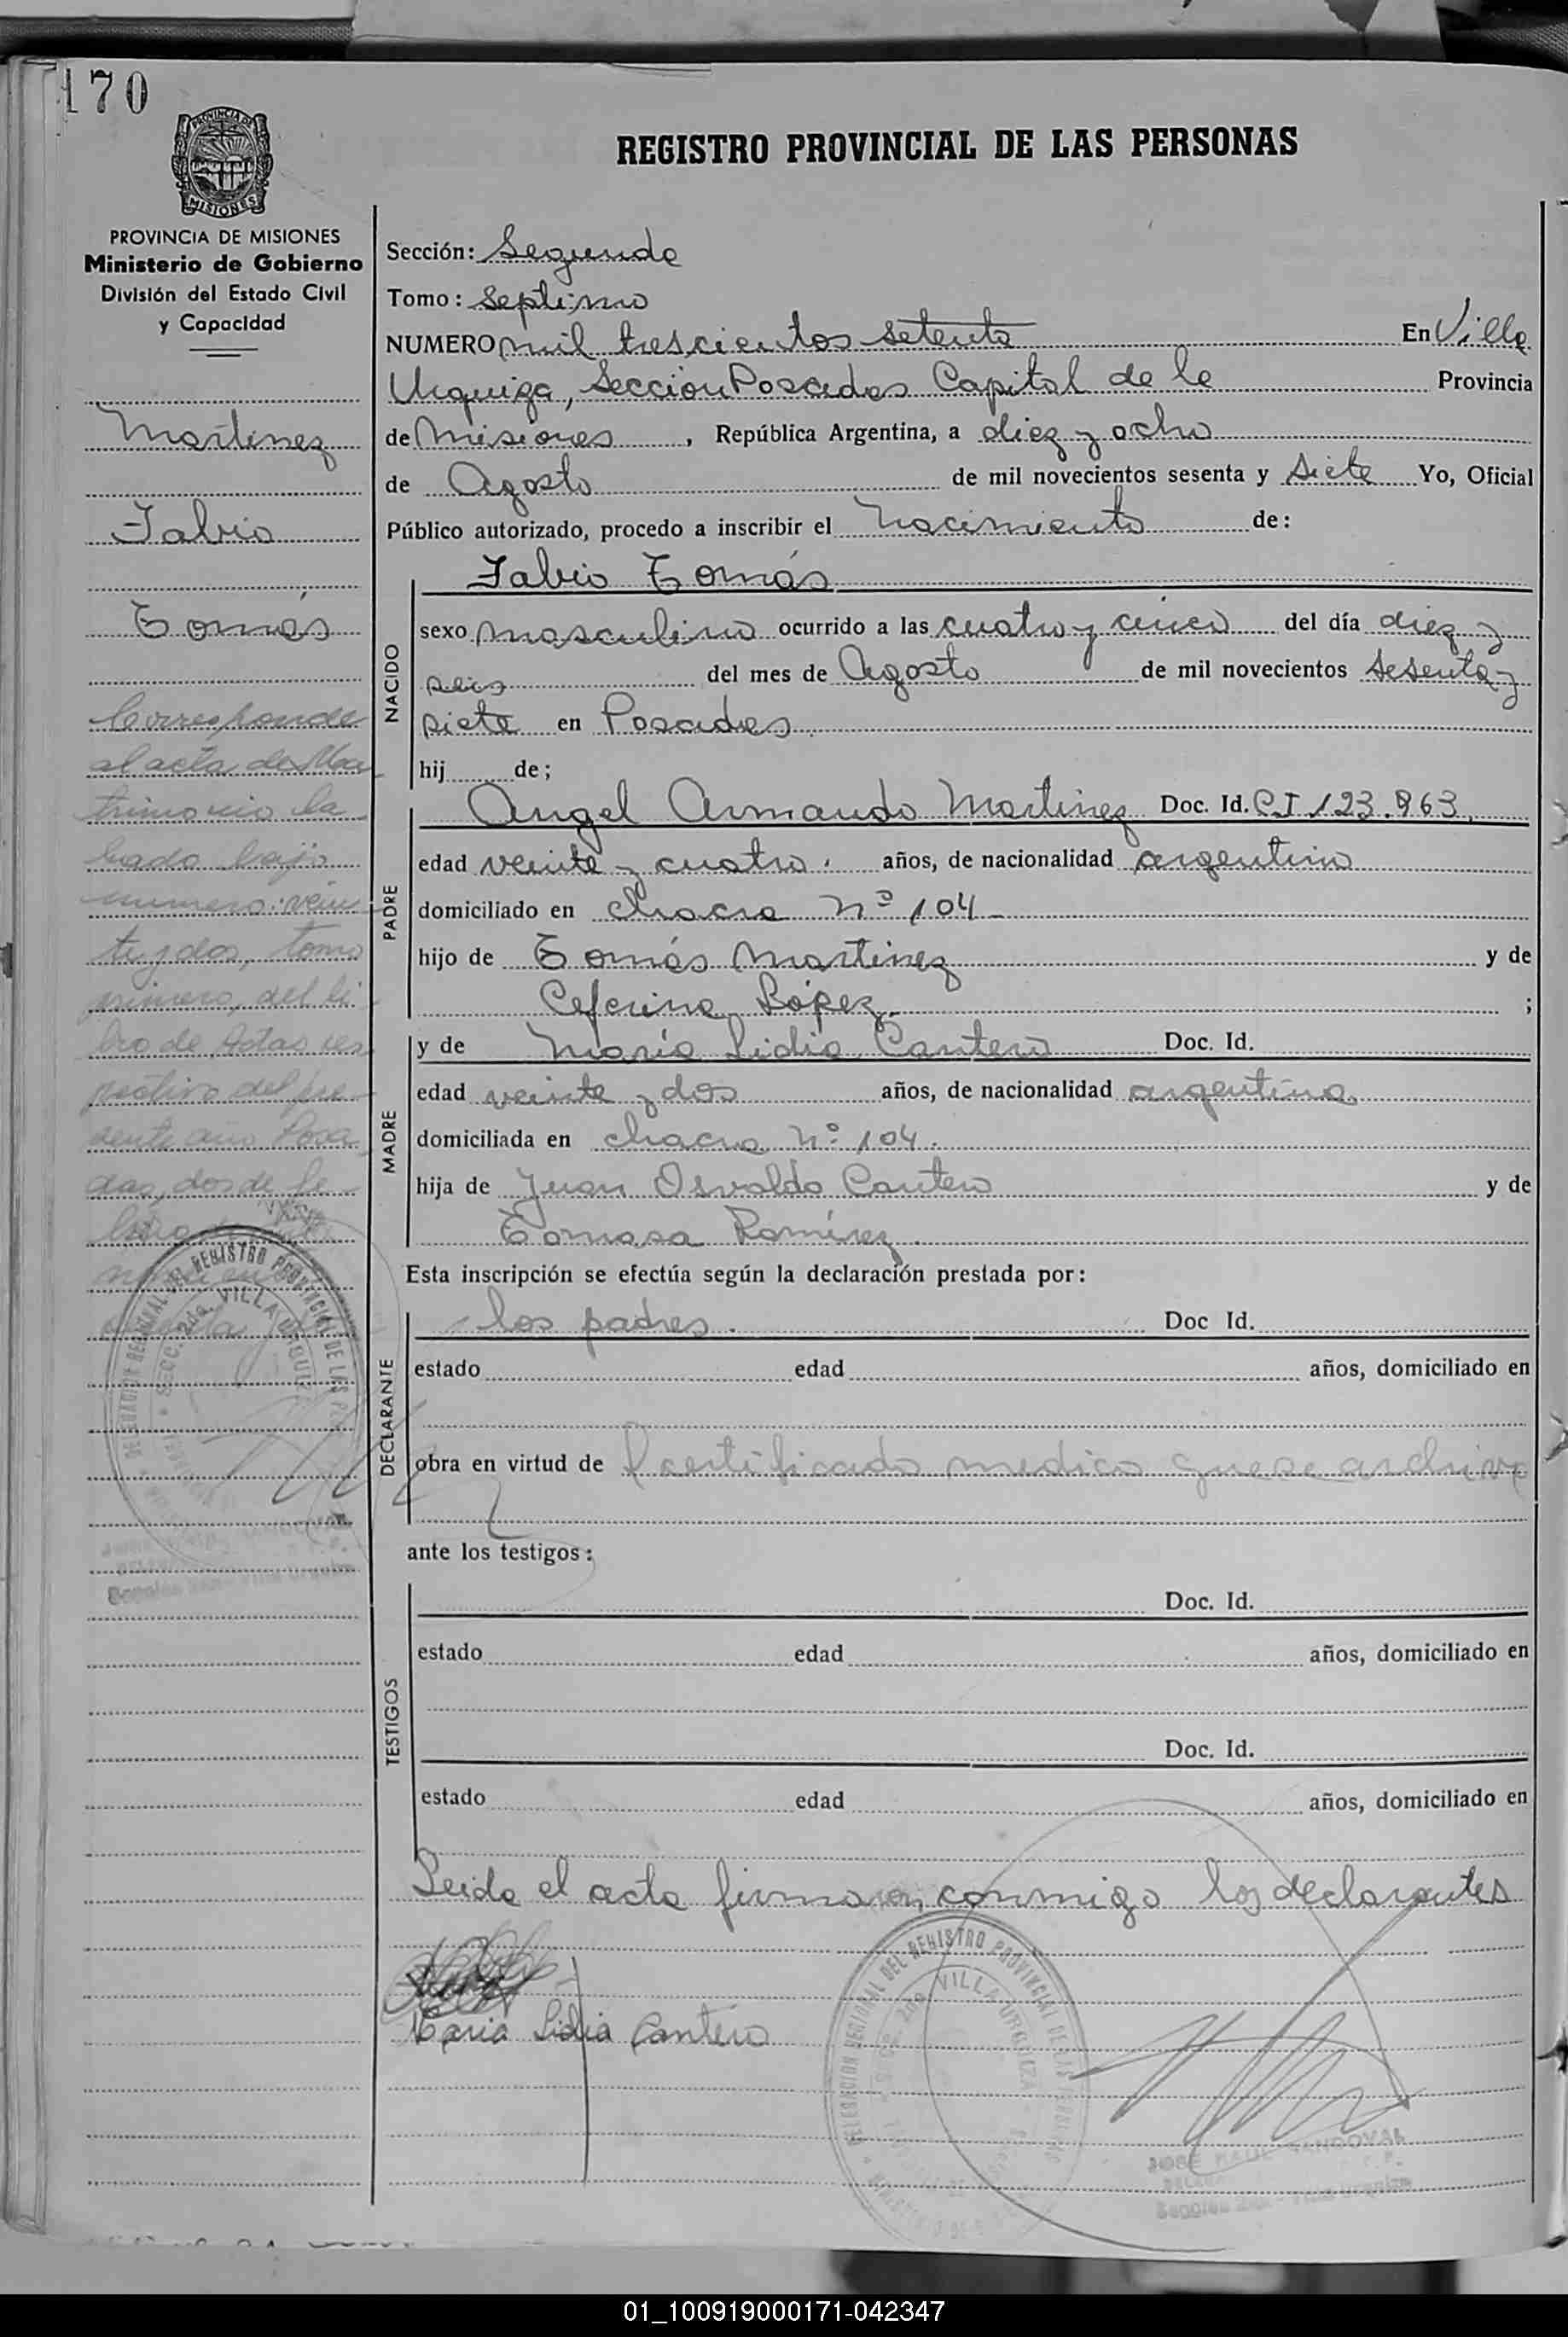 170
PROVINCIA DE
MISIONES
REGISTRO PROVINCIAL DE LAS PERSONAS
PROVINCIA DE MISIONES
Ministerio de Gobierno
División del Estado Civil
y Capacidad
Martinez
Fabio
Tomás
Corresponde
al acta de Ma
trimonio la
brada bajo
numero: vein
te y dos, tomo
primero, del li
bro de Actas res
pectivo del pre
sente año. Posa
das, dos de
DELEGACION REGIONAL DEL REGISTRO PROVINCIAL DE LAS
SECC. 2da. VILLA URQUIZA
Sección: Segunda
Tomo: Septimo
NUMERO mil trescientos setenta En Villa
Urquiza, Sección Posadas Capital de la Provincia
de Misiones, República Argentina, a diez y ocho
de Agosto de mil novecientos sesenta y siete Yo, Oficial
Público autorizado, procedo a inscribir el Nacimiento de:
NACIDO
Fabio Tomás
sexo masculino ocurrido a las cuatro y cinco del día diez y
seis del mes de Agosto de mil novecientos sesenta y
siete en Posadas.
hij de;
PADRE
Angel Armando Martinez Doc. Id. C I 123.863.
edad veinte y cuatro. años, de nacionalidad argentino
domiciliado en chacra Nº 104
hijo de Tomás Martinez y de
Ceferina López. ;
MADRE
y de María Lidia Cantero Doc. Id.
edad veinte y dos años, de nacionalidad argentina.
domiciliada en chacra Nº 104.
hija de Juan Osvaldo Cantero y de
Tomasa Ramírez.
Esta inscripción se efectúa según la declaración prestada por:
DECLARANTE
los padres. Doc Id.
estado edad años, domiciliado en
obra en virtud de certificado medico que se archiva
ante los testigos:
TESTIGOS
Doc. Id.
estado edad años, domiciliado en
Doc. Id.
estado edad años, domiciliado en
Leida el acta firmaron, conmigo los declarantes
Maria Lidia Cantero
DELEGACION REGIONAL DEL REGISTRO PROVINCIAL DE LAS PERSONAS
SECC. 2da. VILLA URQUIZA
JOSE RAUL SANDOVAL
Seccion 2da. - Villa Urquiza
01_100919000171-042347